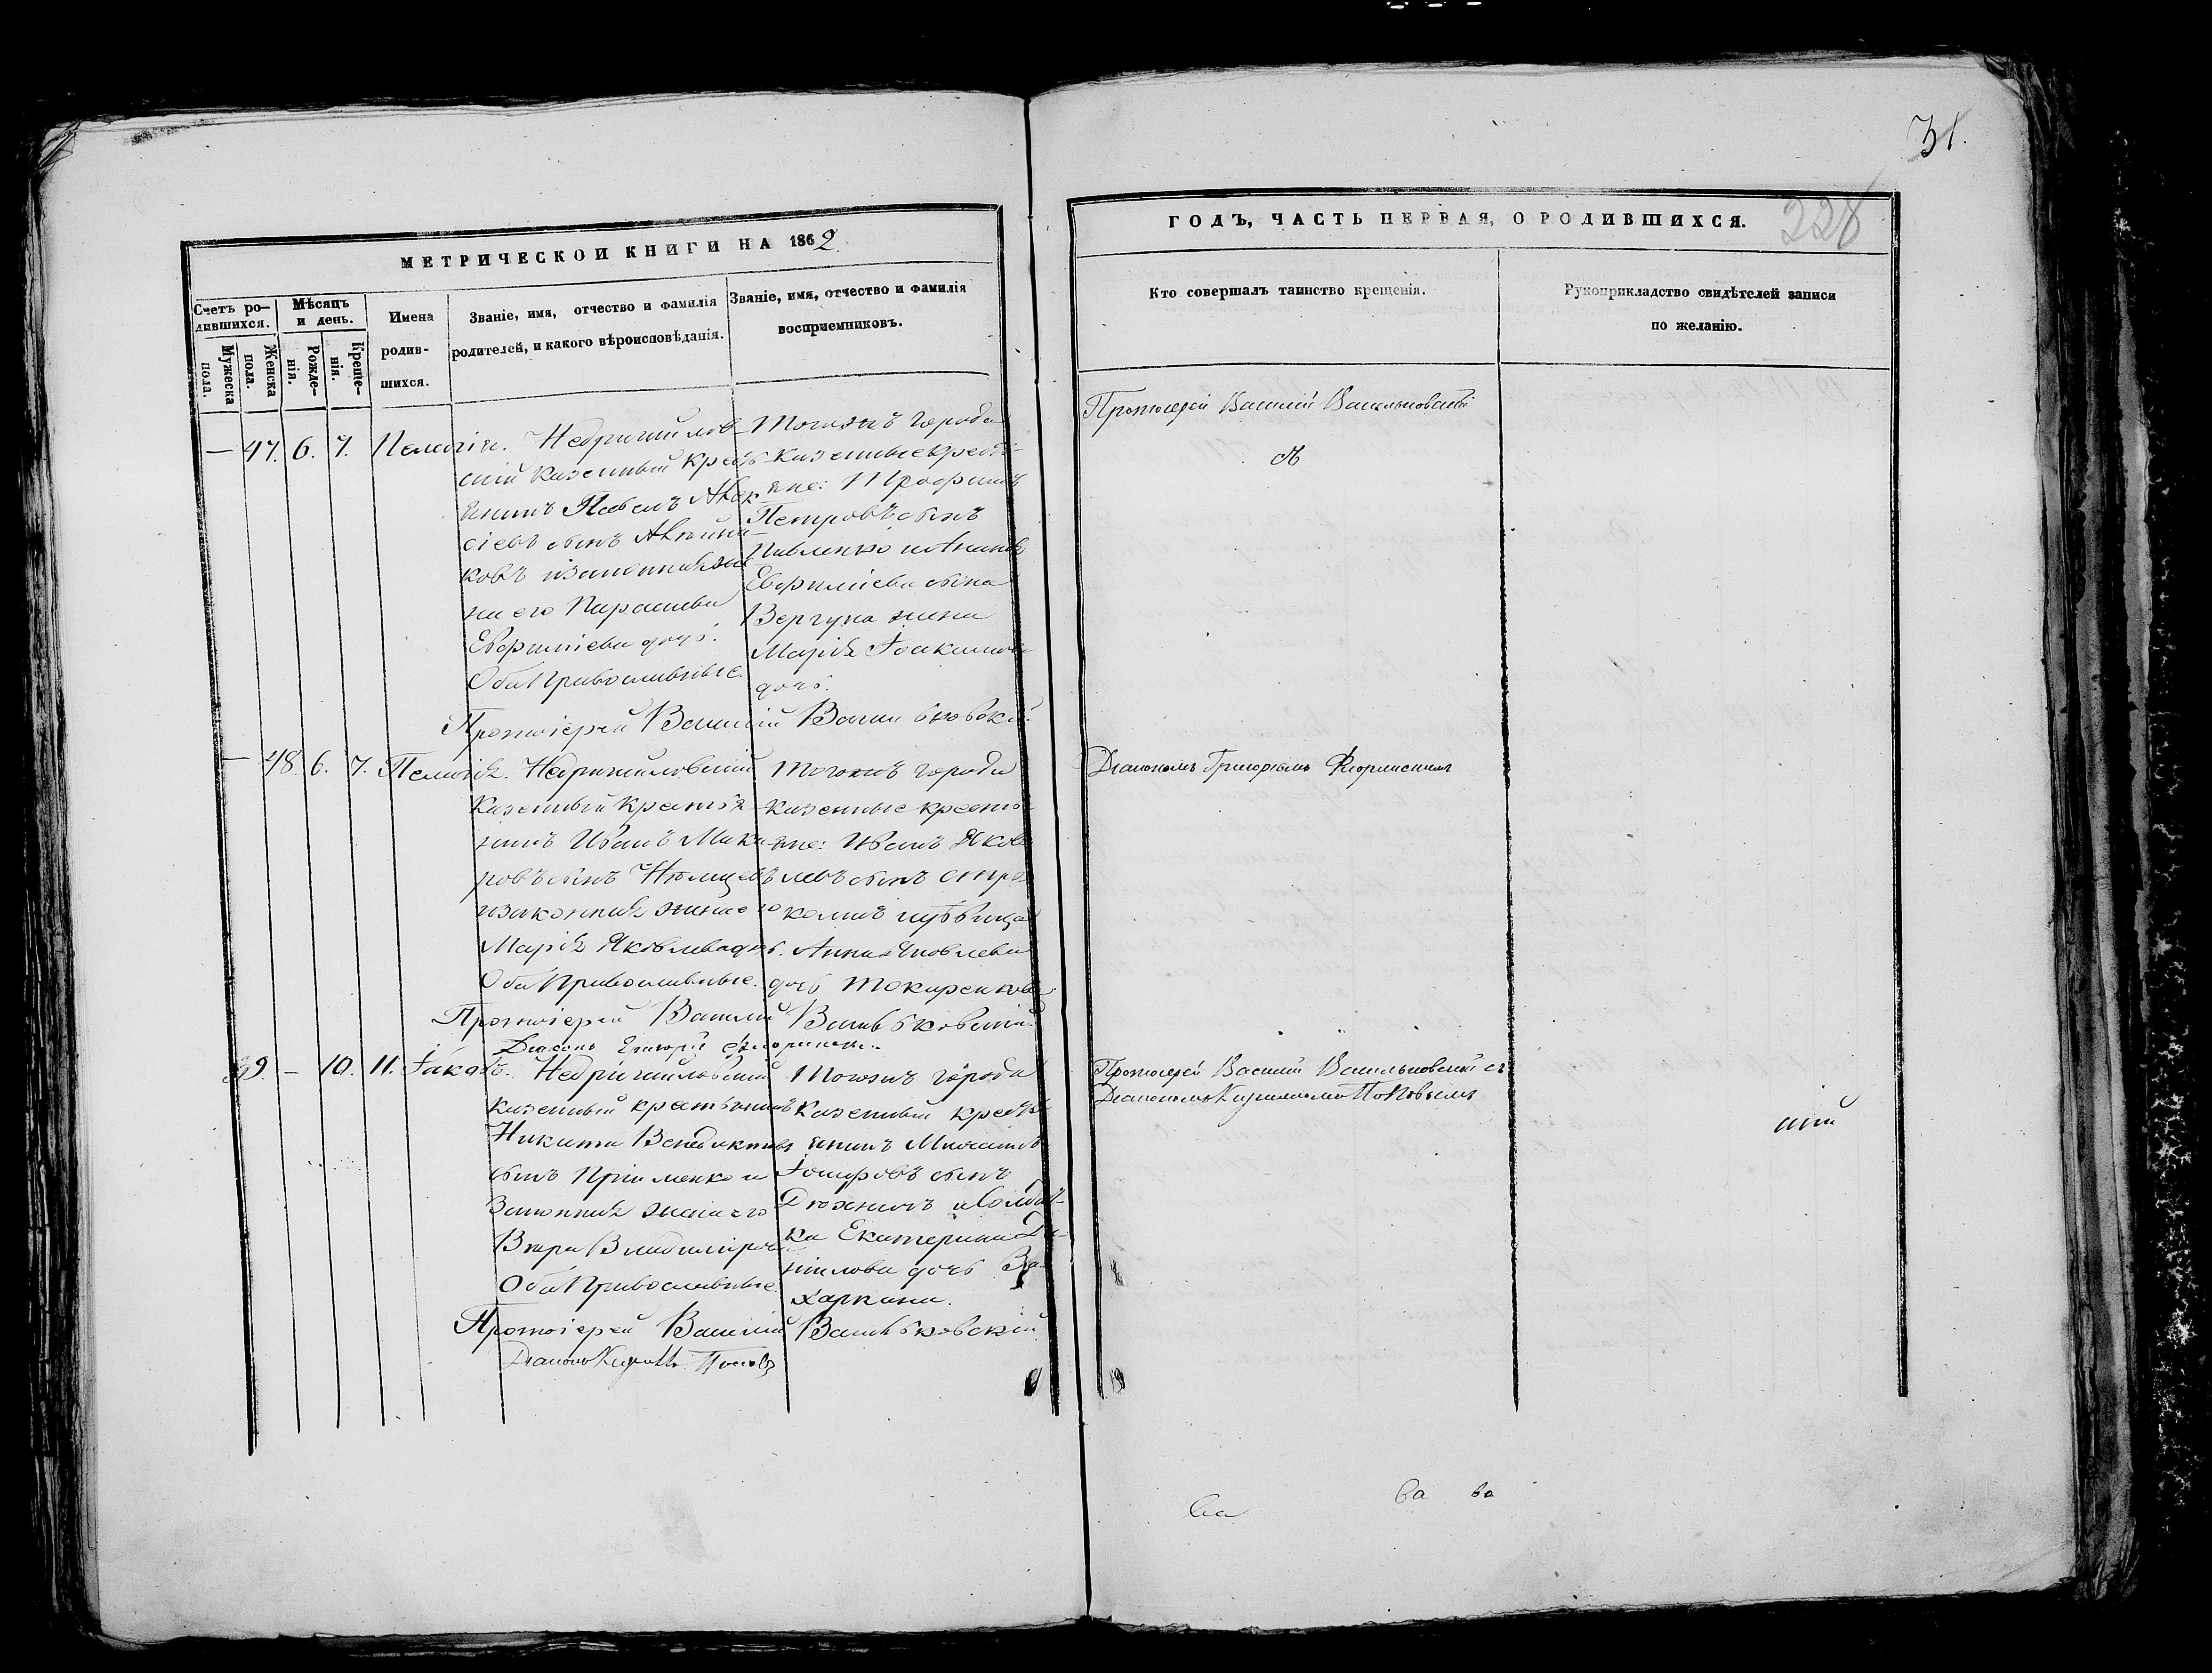 31.
228
МЕТРИЧЕСКОЙ КНИГИ НА 1862
ГОДЪ, ЧАСТЬ ПЕРВАЯ, О РОДИВШИХСЯ.
Счетъ ро-
дившихся.
Мужеска
пола.
Женска
пола.
Мѣсяцъ
и день.
Рожде-
нія.
Креще-
нія.
Имена
родив-
шихся.
Званіе, имя, отчество и фамилія
родителей, и какого вѣроисповѣданія.
Званіе, имя, отчество и фамилія
воспріемниковъ.
Кто совершалъ таинство крещенія.
Рукоприкладство свидѣтелей записи
по желанію.
— 47. 6. 7. Пелагія.
Недригайлов-
скій казенный кресть-
янинъ Павелъ
сіевъ сынъ
ковъ и законная же-
на его Параскева
Евфиміева дочь.
Оба Православные.
Тогожъ города
казенные кресть-
яне: Трофимъ
Петровъ сынъ
Павленко и
Евфиміева сына
Вергуна жена
Марія Іоакимова
дочь.
Протоіерей Василій Васильковскій
Протоіерей Василій Васильковскій
— 48. 6. 7. Пелагія.
Недригайловскій
казенный крестья-
нинъ Иванъ Мака-
ровъ сынъ
и законная жена его
Марія Яковлева дочь.
Оба Православные.
Тогожъ города
казенные кресть-
яне: Иванъ Яков-
левъ сынъ
и дѣвица
Анна Яковлева
дочь Токаренкова
Протоіерей Василій Васильковскій
Діаконъ Григорій
Діакономъ Григоріемъ
39. — 10. 11. Іаковъ.
Недригайловскій
казенный крестьянинъ
Никита Венедиктовъ
сынъ Прійменко и
Законная жена его
Вѣра Владимірова
Оба Православные.
Тогожъ города
Казенный кресть-
янинъ Михаилъ
Іосифовъ сынъ
Дюжинъ и Солдат-
ка Екатерина Да-
нилова дочь За-
харкина.
Протоіерей Василій Васильковскій
Діаконъ Кириллъ Поповъ
Протоіерей Василій Васильковскій съ
Діакономъ Кирилломъ Поповымъ
ва
ва